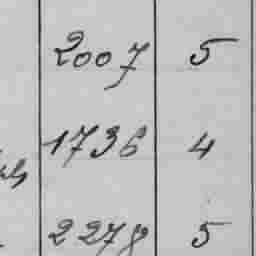 2007 5
1736 4
2278 5